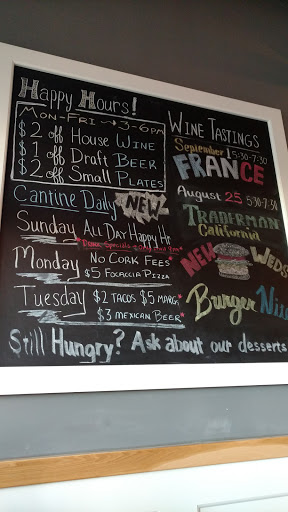 Happy Hours!
Mon-Fri → 3-6pm
$2 off House Wine
$1 off Draft Beer
$2 off Small Plates
Cantine Daily NEW
Sunday All Day Happy Hr
Monday No Cork Fees*
$5 Focaccia Pizza
Tuesday $2 Tacos $5 Marg*
$3 Mexican Beer*
Wine Tastings
September 1 5:30-7:30
FRANCE
August 25 5:30-7:30
Traderman
California
NEW WEDS
Burger
Still Hungry? Ask about our desserts